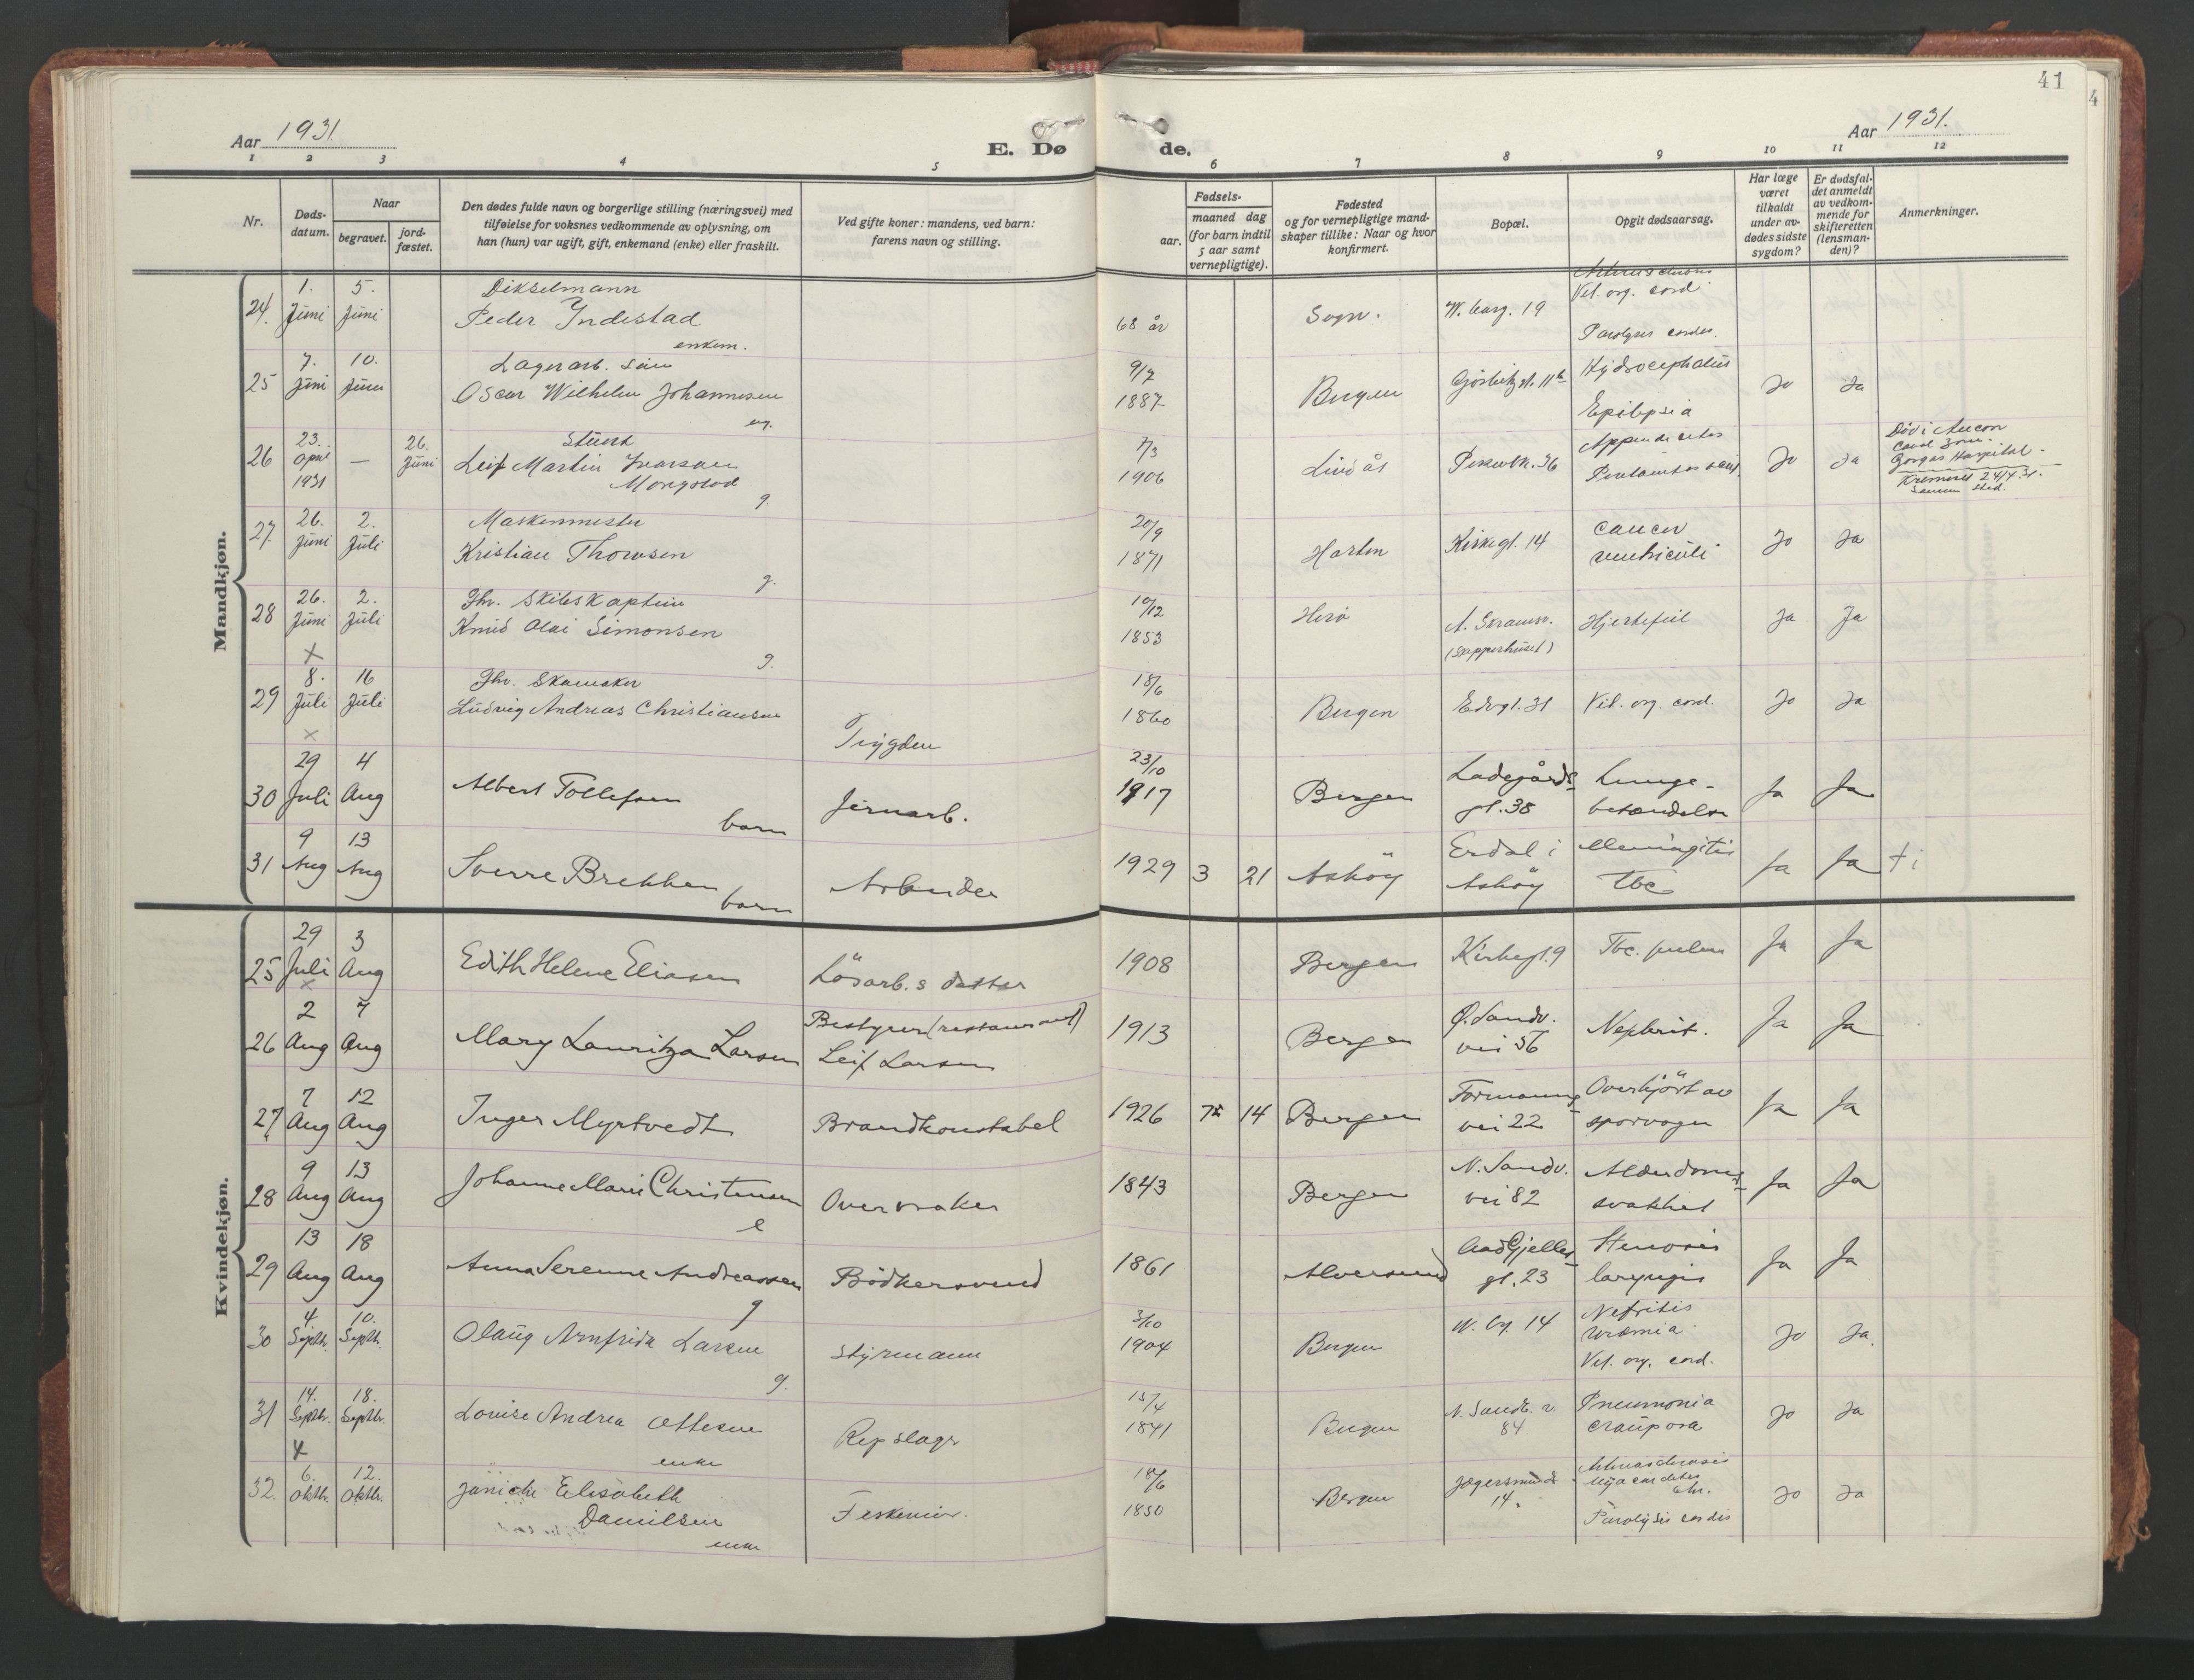 41
4
Aar 1931.
E. Dø
de.
Aar 1931.
1 2 3 4 5 6 7 8 9 10 11 12
Nr.
Døds-
datum.
Naar
begravet.
jord-
fæstet.
Den dødes fulde navn og borgerlige stilling (næringsvei) med
tilføielse for voksnes vedkommende av oplysning, om
han (hun) var ugift, gift, enkemand (enke) eller fraskilt.
Ved gifte koner: mandens, ved barn:
farens navn og stilling.
Fødsels-
aar.
maaned dag
(for barn indtil
5 aar samt
vernepligtige).
Fødested
og for vernepligtige mand-
skaper tillike: Naar og hvor
konfirmert.
Bopæl.
Opgit dødsaarsag.
Har læge
været
tilkaldt
under av-
dødes sidste
sygdom?
Er dødsfal-
det anmeldt
av vedkom-
mende for
skifteretten
(lensman-
den)?
Anmerkninger.
Mandkjøn.
24. 1. Juni 5. Juni
Peder Indestad
enkem.
68 år
Sogn.
19
Vit. org. cord.
Paralysis cordis.
25 7. Juni 10. Juni
Lagerarb. sön
Oscar Wilhelm Johannesen
ug.
9/7
1887
Bergen
Hydrocephalus
Epilepsia
Jo Ja
26 23. April 1931 — 26. Juni
Stuert
Leif Martin Ivarsen
Mongstad
g.
7/3
1906
Lindås
36
Appendicitis
Jo Ja
Död i Ancon
Canal Zone.
Gorgas Hospital.
Kremeret 24/4.31.
samme sted.
27. 26. Juni 2. Juli
Maskinmester
Kristian Thomsen
g.
20/9
1871
Horten
Kirkegt. 14
Cancer
ventriculi
Jo Ja
28 26. Juni 2. Juli
Fhv. Skibskaptein
Knud Olai Simonsen
g.
10/12
1853
Herö
(Skipperhuset)
Hjertefeil
Ja Ja
29 8. Juli 16 Juli
Fhv. Skomaker
Ludvig Andreas Christiansen
Trygden
18/6
1860
Bergen
31
Vit. org. cord.
Jo Ja
30 29 Juli 4 Aug
Albert Tollefsen
barn
Jernarb.
23/10
1917
Bergen
Ladegårds-
gt. 38
Lunge-
betændelse
Ja Ja
31 9 Aug 13 Aug
Sverre Brekken
barn
Arbeider
1929 3 21
Asköy
Erdal i
Asköy
Meningitis
Tbc
Ja Ja
Kvindekjøn.
25 29 Juli 3 Aug
Edith Helene Eliasen
Lösarb.s datter
1908
Bergen
Kirkegt. 9
Tbc. pulm
Ja Ja
26 2 Aug 7 Aug
Mary Lauritza Larsen
Bestyrer (restaurant)
Leif Larsen
1913
Bergen
Ö. Sandv.
vei 56
Nephrit.
Ja Ja
27 7 Aug 12 Aug
Inger Myrtvedt
Brandkonstabel
1926 7 14
Bergen
Formanns-
vei 22
Overkjört av
sporvogn
Ja Ja
28 9 Aug 13 Aug
Johanne Marie Christensen
e
Overvraker
1843
Bergen
N. Sandv.
vei 82
Alderdoms-
svakhet
Ja Ja
29 13 Aug 18 Aug
Anna Serenne Andreassen
g
Bödkersvend
1861
Alversund
Aad Gjelles-
gt. 23
Stenosis
laryngis
Ja Ja
30 4 Septb. 10. Septb.
Olaug Arnfrida Larsen
g.
Styrmann
3/10
1904
Bergen
14
Nefritis
Uræmia
Vit. org. cord.
Jo Ja.
31 14. Septb. 18. Septb.
Louise Andrea Ottesen
enke
Repslager
15/4
1841
Bergen
N. Sandv. v.
84
Pneumonia
crouposa
Jo Ja
32. 6. Oktb. 12. Oktb.
Janicke Elisabeth
Danielsen
enke
18/6
1850
Bergen
14.
chr.
Paralysis cordis
Jo Ja